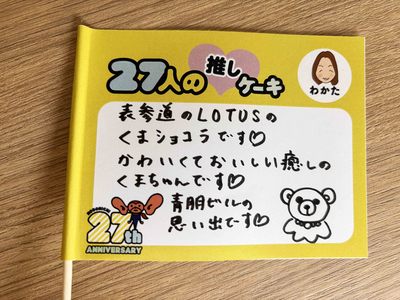 27人の推しケーキ
わかた
表参道のLOTUSの
くまショコラです♡
かわいくておいしい癒しの
くまちゃんです♡
青朋ビルの
思い出です♡
27th
ANNIVERSARY